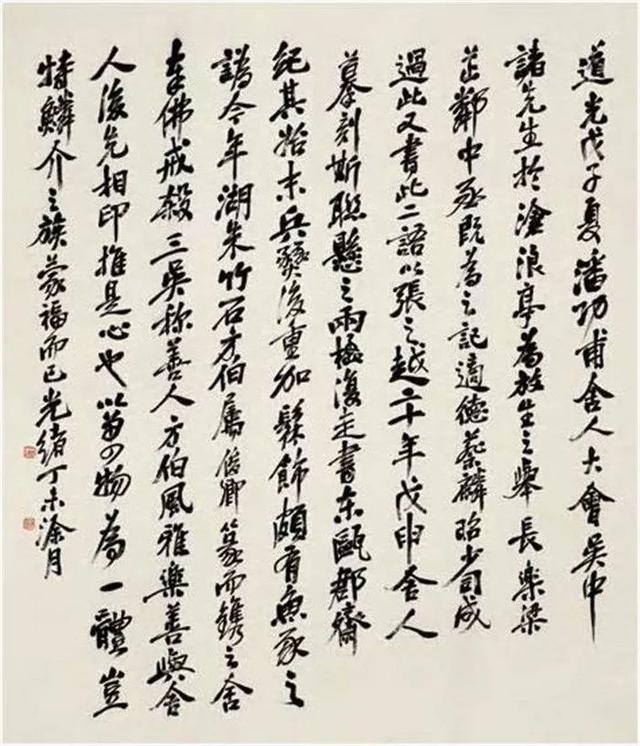 道光戊子夏潘功甫舍人大會吳中
諸先生於滄浪亭為放生之舉長樂梁
芷鄰中丞既為之記適德蔡麟昭少司成
過此又書此二語以張之越二十年戊申舍人
摹刻斯聯懸之兩楹復走書東甌郡齋
紀其始末兵燹後重加髹飾頗有魚豕之
譌今年湖朱竹石方伯屬俊卿篆而鐫之舍
奉佛戒殺三吳稱善人方伯風雅樂善與舍
人後先相印推是心也以萬物為一體豈
特鱗介之族蒙福而已光緒丁未涂月